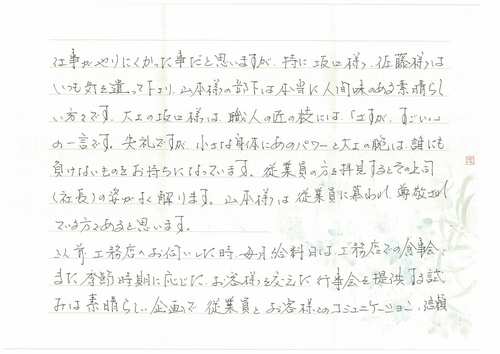 仕事がやりにくかった事だと思いますが、特に坂口様、佐藤様は
いつも気を遣って下さり、山本様の部下は本当に人間味のある素晴らし
い方々です。大工の坂口様は、職人の匠の技には「さすが、すごい」
の一言です。失礼ですが、小さな身体にあのパワーと大工の腕は、誰にも
負けないものをお持ちになっています。従業員の方を拝見するとその上司
(社長)の姿がよく解ります。山本様は従業員に慕われ、尊敬され
ている方であると思います。
以前工務店へお伺いした時、毎月給料日は工務店での食事会、
また季節時期に応じた、お客様を交えた行事会を提供する試
みは素晴らしい企画で従業員とお客様とのコミュニケーション、信頼